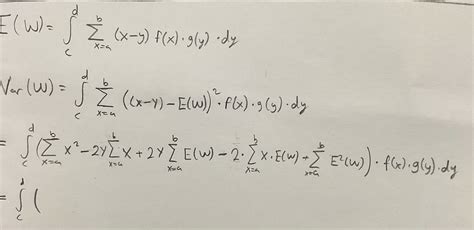 E(W) = ∫_c^d ∑_{x=a}^b (x-y) f(x)·g(y)·dy
Var(W) = ∫_c^d ∑_{x=a}^b ((x-y) - E(W))²·f(x)·g(y)·dy
= ∫_c^d (∑_{x=a}^b x² - 2y ∑_{x=a}^b x + 2y ∑_{x=a}^b E(W) - 2·∑_{x=a}^b x·E(W) + ∑_{x=a}^b E²(W))·f(x)·g(y)·dy
= ∫_c^d (